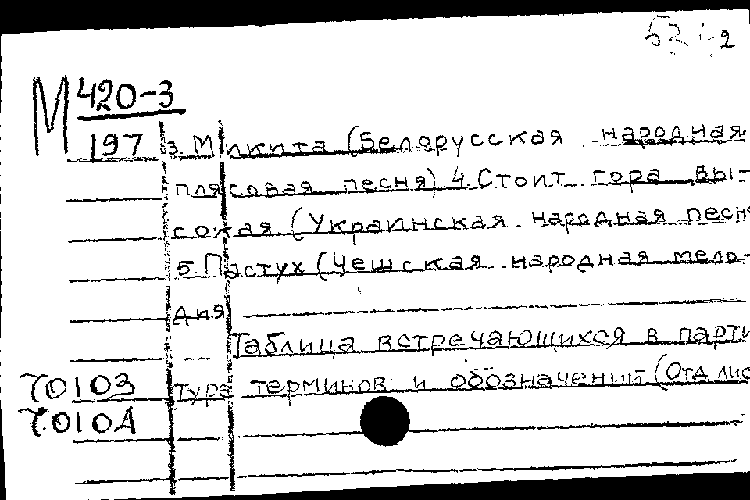 М 420-3
197
3. Микита (Белорусская народная
плясовая песня) 4. Стоит гора вы-
сокая (Украинская народная песня
5. Пастух (Чешская народная мело-
дия)
Таблица встречающихся в парти
туре терминов и обозначений (Отд. лис
70103
7010А